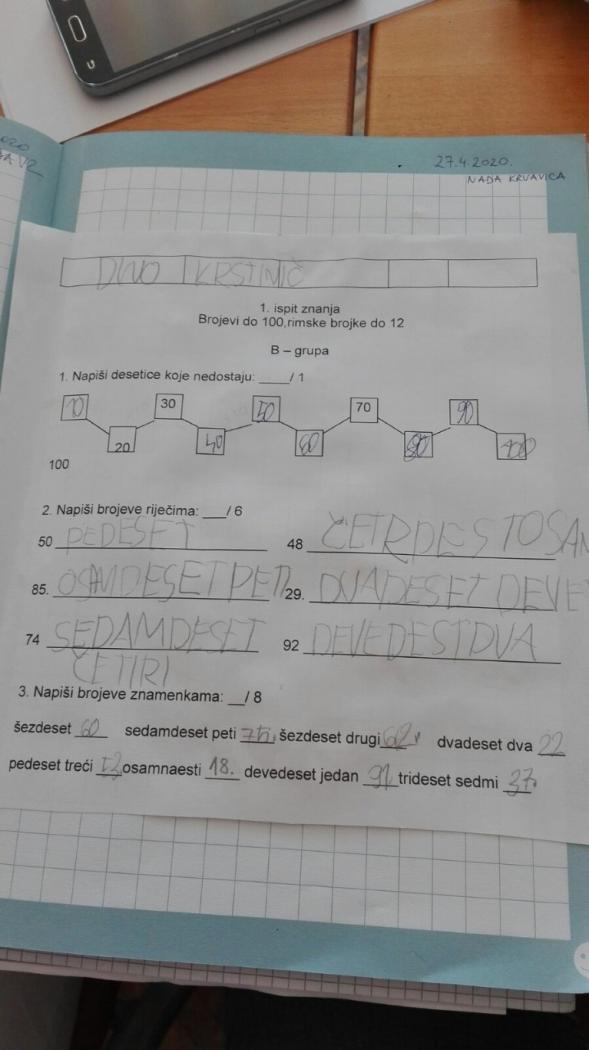 27.4.2020.
NADA KRVAVICA
DINO KRSTINIĆ
1. ispit znanja
Brojevi do 100,rimske brojke do 12
B – grupa
1. Napiši desetice koje nedostaju: _____/ 1
10 20 30 40 50 60 70 80 90 100
100
2. Napiši brojeve riječima: ___/ 6
50 PEDESET 48 ČETRDESTOSAM
85. OSAMDESETPETI 29. DVADESET DEVE
74 SEDAMDESET 92 DEVEDESTDVA
ČETIRI
3. Napiši brojeve znamenkama: __/ 8
šezdeset 60 sedamdeset peti 75., šezdeset drugi 62. dvadeset dva 22
pedeset treći 53 osamnaesti 18. devedeset jedan 91 trideset sedmi 37.